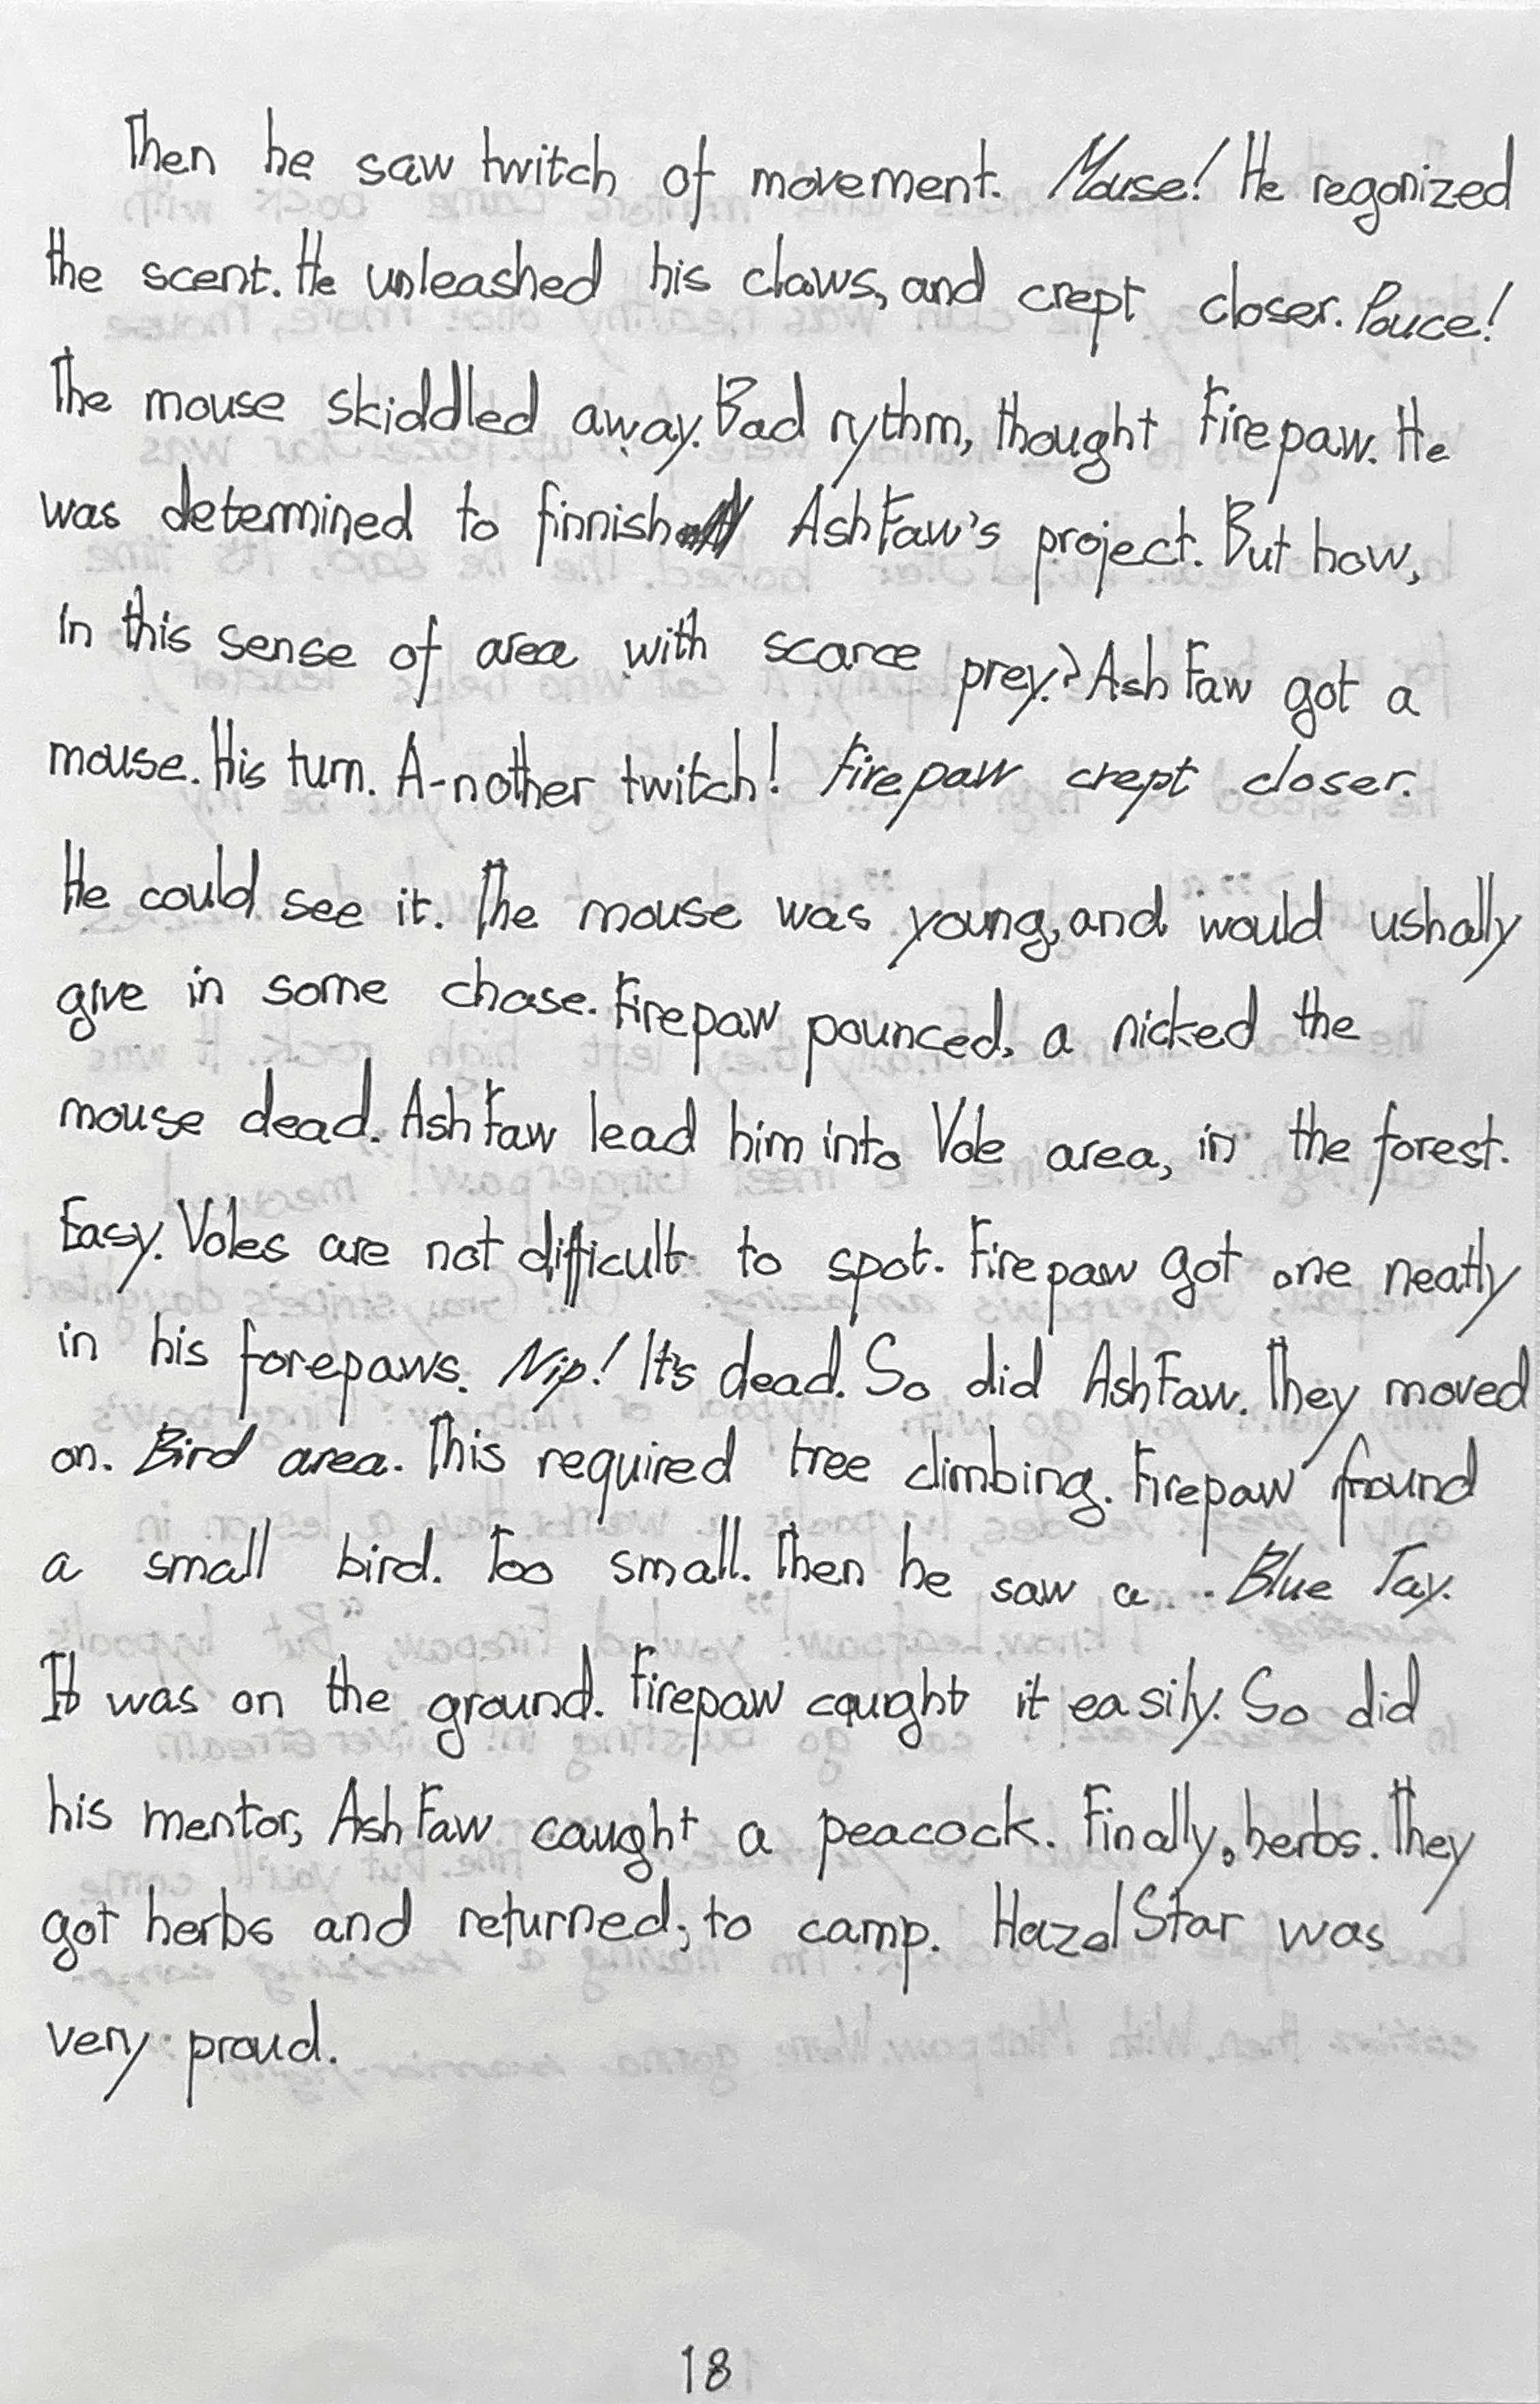 Then he saw twitch of movement. Mouse! He regonized
the scent. He unleashed his claws, and crept closer. Pouce!
The mouse skiddled away. Bad rythm, thought Firepaw. He
was determined to finnish AshFaw's project. But how,
In this sense of area with scarce prey? AshFaw got a
mouse. His turn. A-nother twitch! Firepaw crept closer.
He could see it. The mouse was young, and would ushally
give in some chase. Firepaw pounced, a nicked the
mouse dead. AshFaw lead him into Vole area, in the forest.
Easy. Voles are not difficult to spot. Firepaw got one neatly
in his forepaws. Nip! It's dead. So did AshFaw. They moved
on. Bird area. This required tree climbing. Firepaw found
a small bird. Too small. Then he saw a... Blue Jay.
It was on the ground. Firepaw caught it easily. So did
his mentor, AshFaw caught a peacock. Finally, herbs. They
got herbs and returned, to camp. HazelStar was
very proud.
18